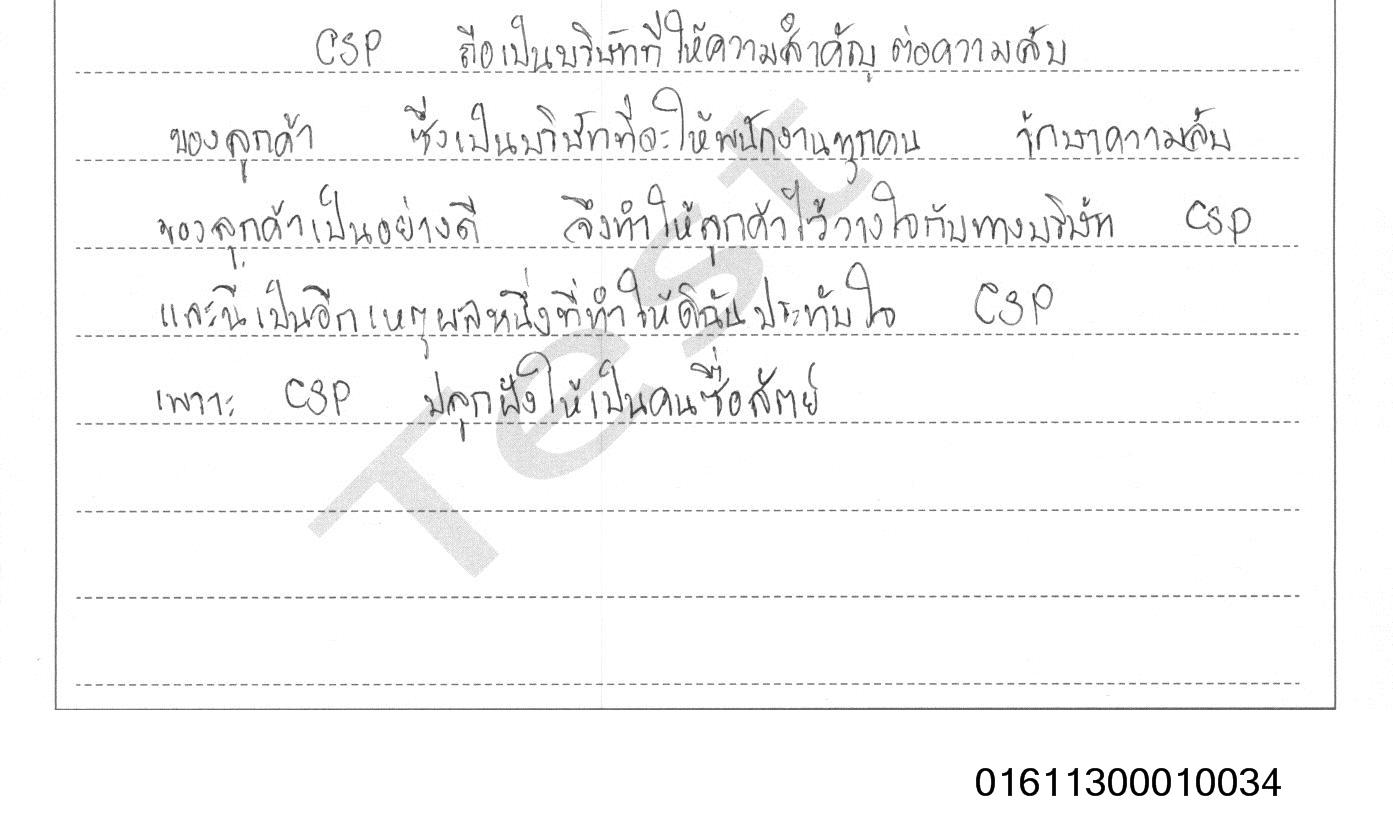 CSP ถือเป็นบริษัทที่ให้ความสำคัญต่อความลับ
ของลูกค้า ซึ่งเป็นบริษัทที่จะให้พนักงานทุกคน รักษาความลับ
ของลูกค้าเป็นอย่างดี จึงทำให้ลูกค้าไว้วางใจกับทางบริษัท CSP
และนี่เป็นอีกเหตุผลหนึ่งที่ทำให้ดิฉันประทับใจ CSP
เพราะ CSP ปลูกฝังให้เป็นคนซื่อสัตย์
Test
01611300010034